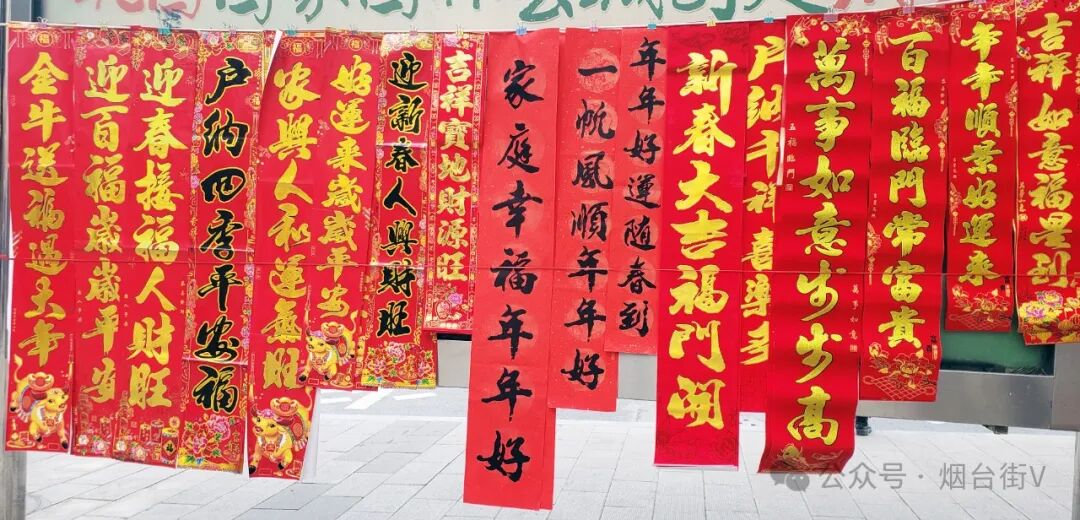 金牛送福過大年
迎百福歲歲平安
迎春接福人財旺
户納四季平安福
家興人和運氣旺
好運来歲歲平安
迎新春人興財旺
吉祥寶地財源旺
家庭幸福年年好
一帆風順年年好
年年好運随春到
新春大吉福門開
户納千福喜樂多
萬事如意步步高
五福臨門
萬事如意
百福臨門常富貴
年年順景好運来
吉祥如意福星到
公众号·烟台街V